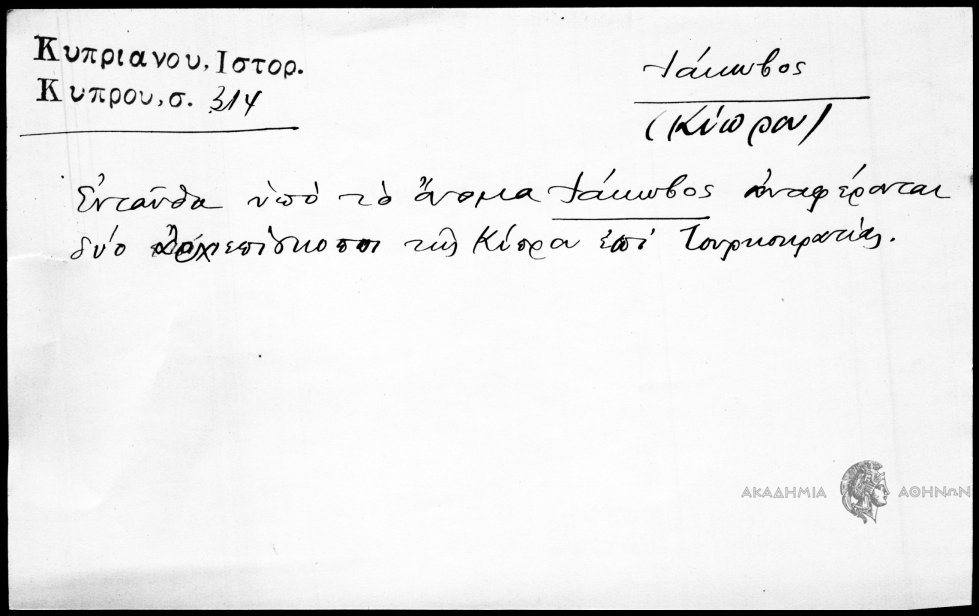 Κυπριανου, Ιστορ.
Κυπρου, σ. 314
Ἰάκωβος
(Κύπρου)
Ἐνταῦθα ὑπὸ τὸ ὄνομα Ἰάκωβος ἀναφέρονται
δύο ἀρχιεπίσκοποι τῆς Κύπρου ἐπὶ Τουρκοκρατίας.
ΑΚΑΔΗΜΙΑ ΑΘΗΝΩΝ